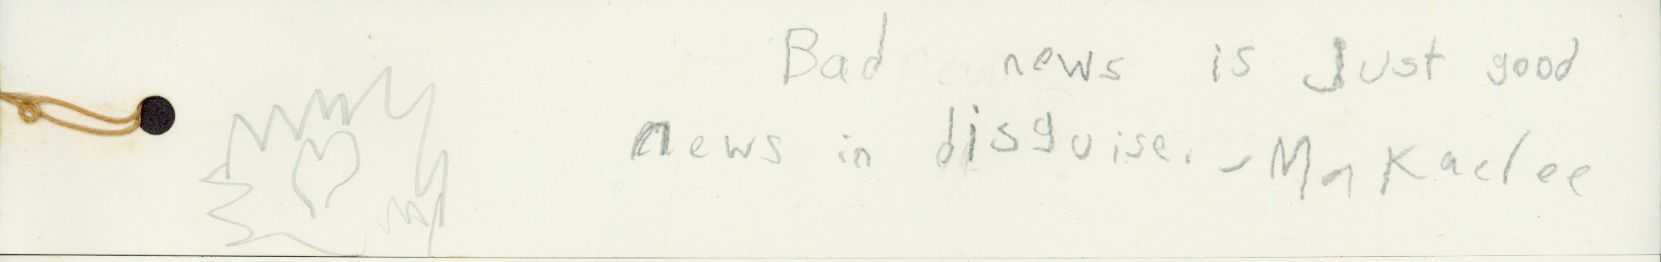 Bad news is Just good
news in disguise. -MaKaelee